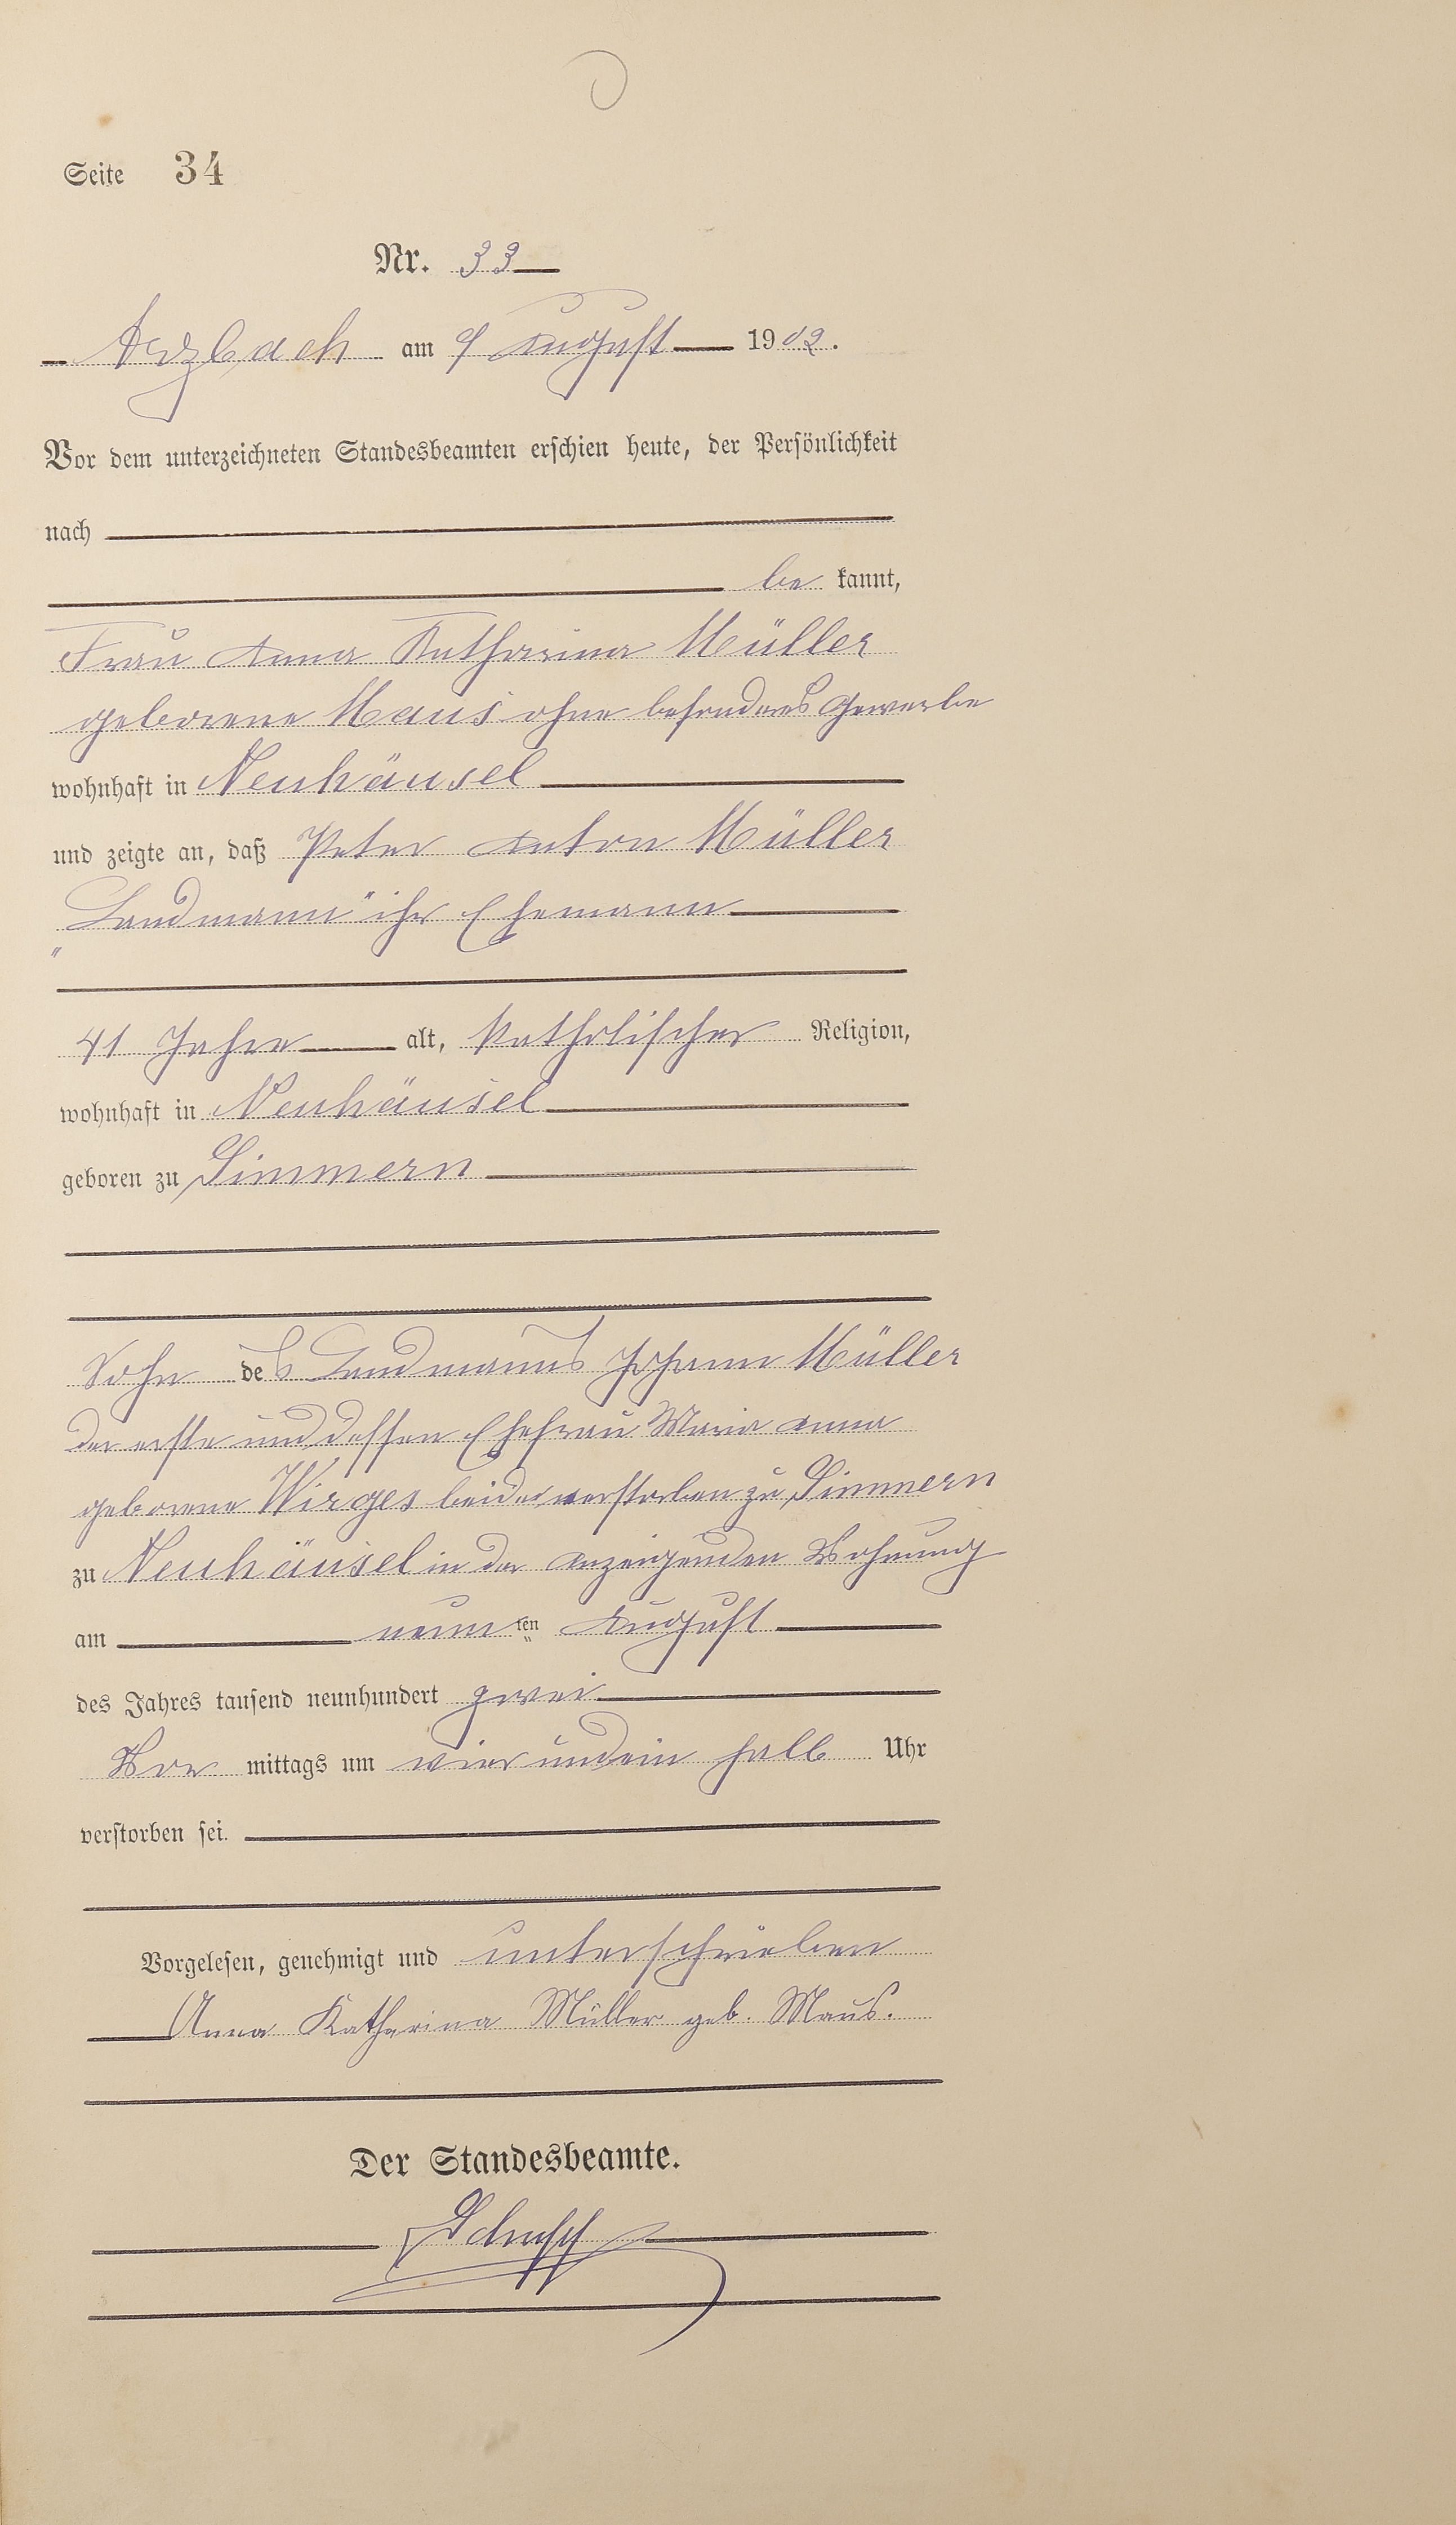 Seite 34
Nr. 33
Arzbach am 9 August 1902.
Vor dem unterzeichneten Standesbeamten erschien heute, der Persönlichkeit
nach
be kannt,
Frau Anna Katharina Müller
geborene Maus ohne besonderes Gewerbe
wohnhaft in Neuhäusel
und zeigte an, daß Peter Anton Müller
"Landmann" ihr Ehemann
41 Jahre alt, katholischer Religion,
wohnhaft in Neuhäusel
geboren zu Simmern
Sohn des Landmanns Johann Müller
der erste und dessen Ehefrau Maria Anna
geborene Wirges beide verstorben zu Simmern
zu Neuhäusel in der Anzeigenden Wohnung
am neunten August
des Jahres tausend neunhundert zwei
Vor mittags um vier und ein halb Uhr
verstorben sei.
Vorgelesen, genehmigt und unterschrieben
Anna Katharina Müller geb. Maus.
Der Standesbeamte.